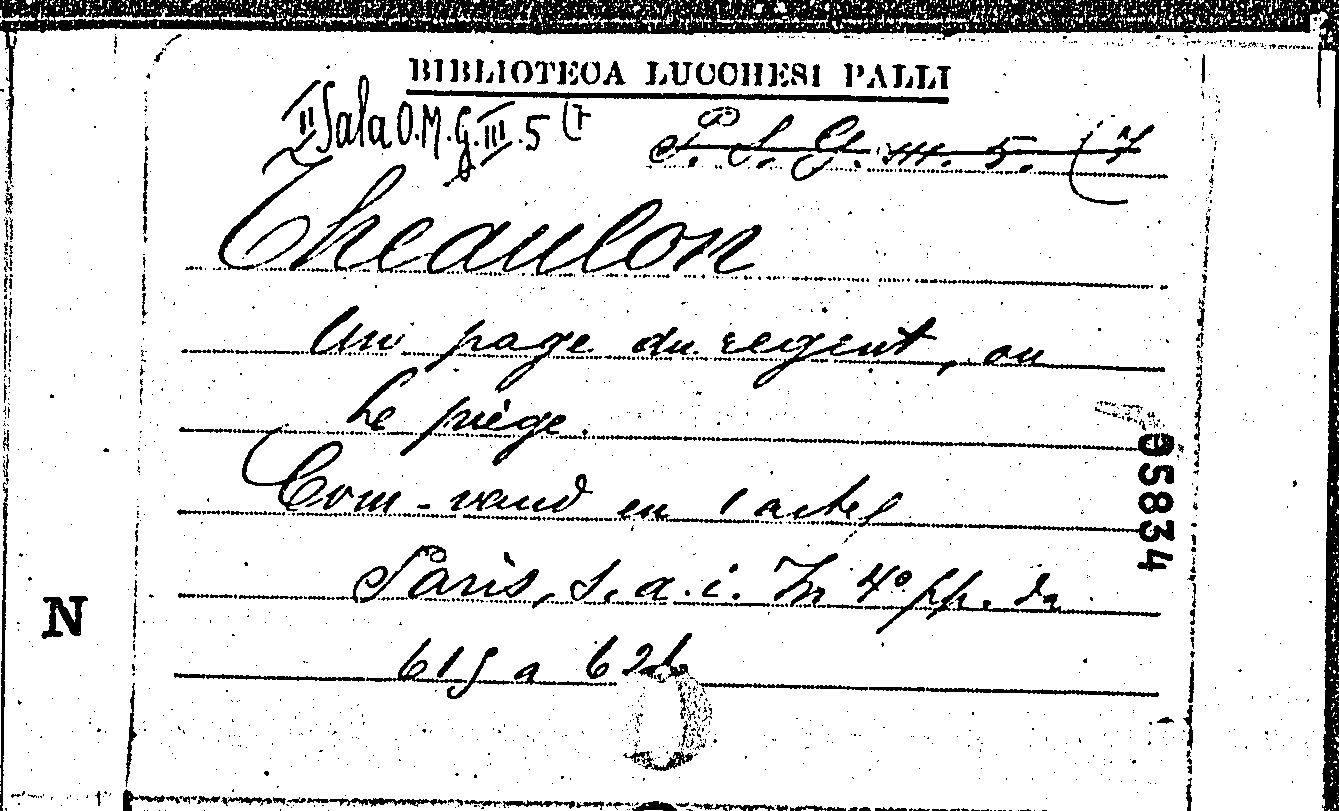 BIBLIOTECA LUCCHESI PALLI
II Sala O.M.G.III.5 (7
P. S. G. III. 5. (7
Theaulon
Un page du regent, ou
Le piège.
Com-vaud en 1 actes
Paris, s. a. i. In 4° pp. da
615 a 626
95834
N